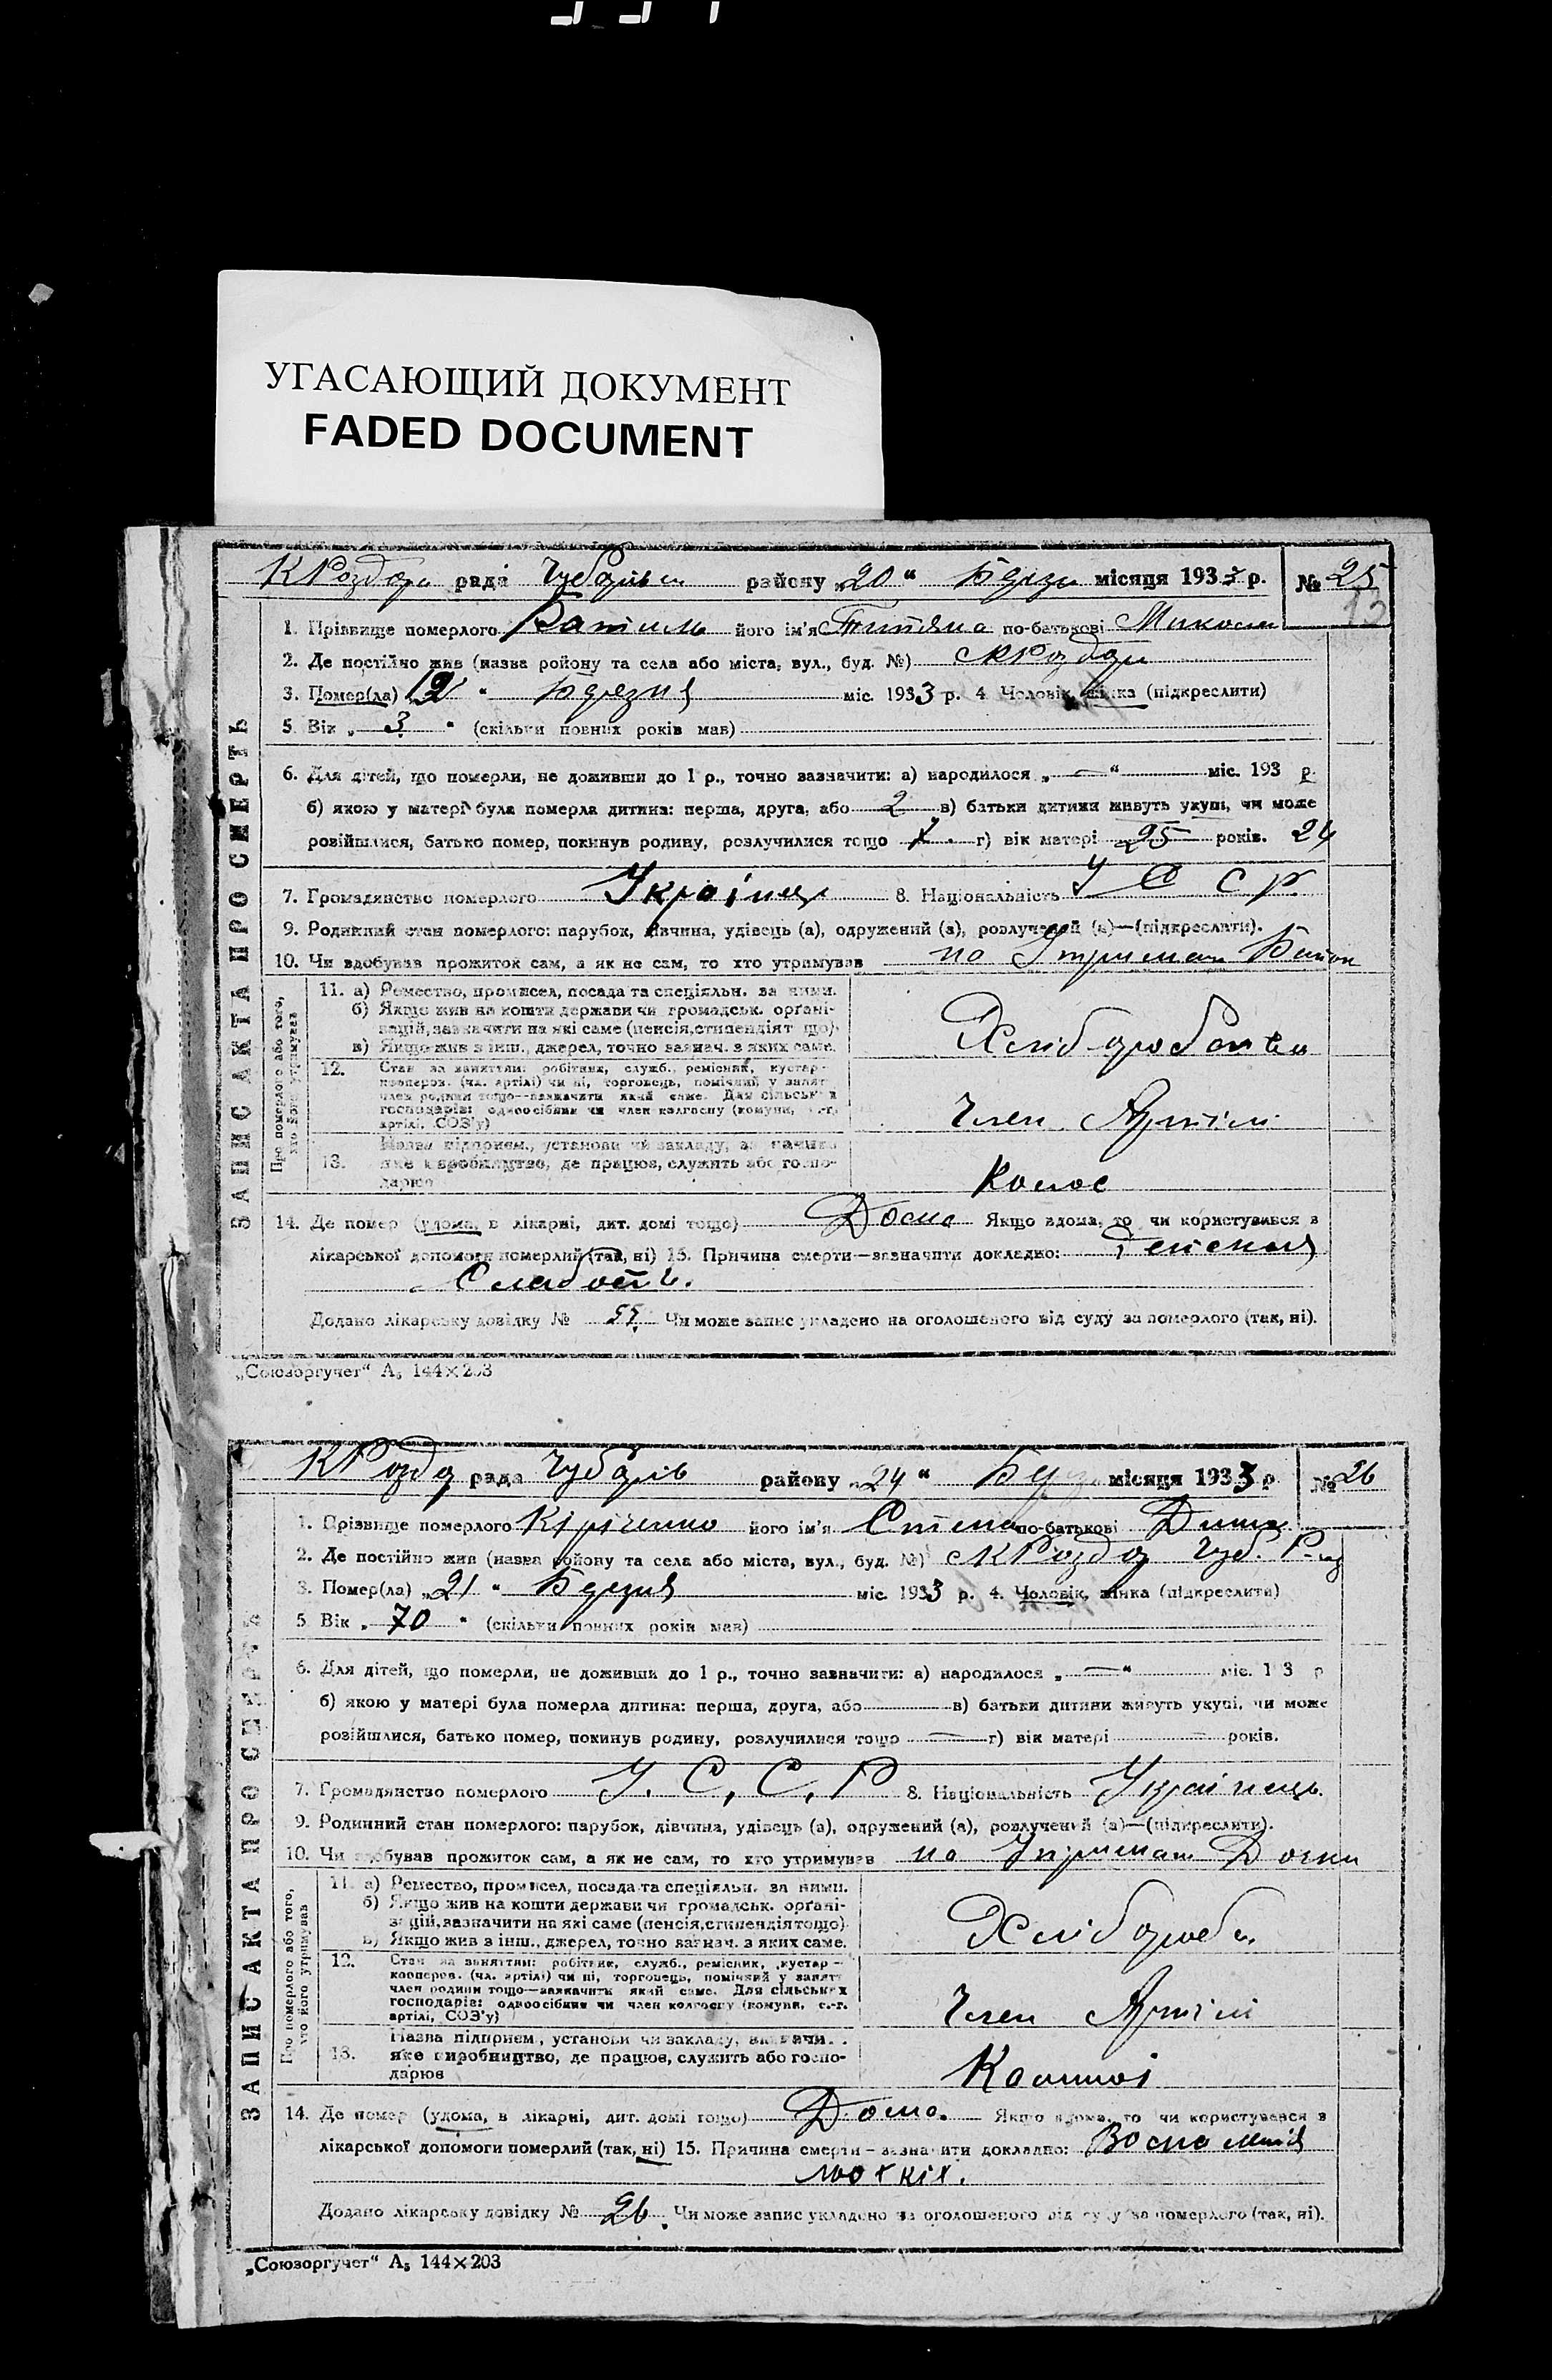 УГАСАЮЩИЙ ДОКУМЕНТ
FADED DOCUMENT
рада району „20“ місяця 1933 р. № 25
13
1. Прізвище померлого його ім'я по-батькові
2. Де постійно жив (назва ройону та села або міста, вул., буд. №)
3. Помер(ла) Березня міс. 1933 р. 4 Чоловік, жінка (підкреслити)
5. Вік „ 3 “ (скільки повних років мав)
6. Для дітей, що померли, не доживши до 1 р., точно зазначити: а) народилося „ — “ міс. 193 р.
б) якою у матері була померла дитина: перша, друга, або 2 в) батьки дитини живуть укупі, чи може
розійшлися, батько помер, покинув родину, розлучилися тощо г) вік матері 25 років. 24
7. Громадянство померлого Українць 8. Національність У С С Р
9. Родинний стан померлого: парубок, дівчина, удівець (а), одружений (а), розлучений (а)—(підкреслити).
10. Чи здобував прожиток сам, а як не сам, то хто утримував на
ЗАПИС АКТА ПРО СМЕРТЬ
Про померлого або того, хто його утримував
11. а) Ремество, промисел, посада та спеціяльн. за ними.
б) Якщо жив на кошти держави чи громадськ. органі-
зацій, зазначити на які саме (пенсія, стипендія тощо).
в) Якщо жив з інш., джерел, точно зазнач. з яких саме.
12. Стан за заняттям: робітник, служб., ремісник, кустар-
кооперов. (чл. артілі) чи ні, торговець, помічний у занят.
член родини тощо—зазначити який саме. Для сільських
господарів: одноосібник чи член колгоспу (комуни, с.-г.
артілі, СОЗ'у)
Член Артілі
13. Назва підприєм., установи чи закладу, зазначив.
яке виробництво, де працює, служить або госпо-
дарює
Колос
14. Де помер (удома, в лікарні, дит. домі тощо) Дома Якщо вдома, то чи користувався з
лікарської допомоги померлий (так, ні) 15. Причина смерти—зазначити докладно:
Слабость.
Додано лікарську довідку № Чи може запис укладено на оголошеного від суду за померлого (так, ні).
„Союзоргучет“ А₅ 144×203
рада району „24“ місяця 1933 р. № 26
1. Прізвище померлого Кіріченко його ім'я по-батькові
2. Де постійно жив (назва ройону та села або міста, вул., буд. №)
3. Помер(ла) „21“ Березня міс. 1933 р. 4. Чоловік, жінка (підкреслити)
5. Вік „ 70 “ (скільки повних років мав)
6. Для дітей, що померли, не доживши до 1 р., точно зазначити: а) народилося „ — “ міс. 193 р
б) якою у матері була померла дитина: перша, друга, або в) батьки дитини живуть укупі, чи може
розійшлися, батько помер, покинув родину, розлучилися тощо — г) вік матері — років.
7. Громадянство померлого У. С. С. Р 8. Національність Українець.
9. Родинний стан померлого: парубок, дівчина, удівець (а), одружений (а), розлучений (а)—(підкреслити).
10. Чи здобував прожиток сам, а як не сам, то хто утримував на Дочки
ЗАПИС АКТА ПРО СМЕРТЬ
Про померлого або того, хто його утримував
11. а) Ремество, промисел, посада та спеціяльн. за ними.
б) Якщо жив на кошти держави чи громадськ. органі-
зацій, зазначити на які саме (пенсія, стипендія тощо).
в) Якщо жив з інш., джерел, точно зазнач. з яких саме.
12. Стан за заняттям: робітник, служб., ремісник, кустар-
кооперов. (чл. артілі) чи ні, торговець, помічний у занят.
член родини тощо—зазначити який саме. Для сільських
господарів: одноосібник чи член колгоспу (комуни, с.-г.
артілі, СОЗ'у)
Член Артілі
13. Назва підприєм., установи чи закладу, зазначив.
яке виробництво, де працює, служить або госпо-
дарює
14. Де помер (удома, в лікарні, дит. домі тощо) Дома. Якщо вдома, то чи користувався з
лікарської допомоги померлий (так, ні) 15. Причина смерти—зазначити докладно:
Додано лікарську довідку № 26. Чи може запис укладено на оголошеного від суду за померлого (так, ні).
„Союзоргучет“ А₅ 144×203